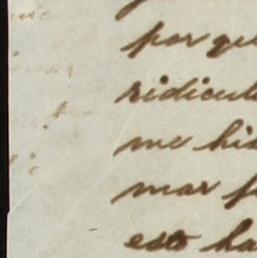 por qu
ridicul
me his
mar f
esto ha